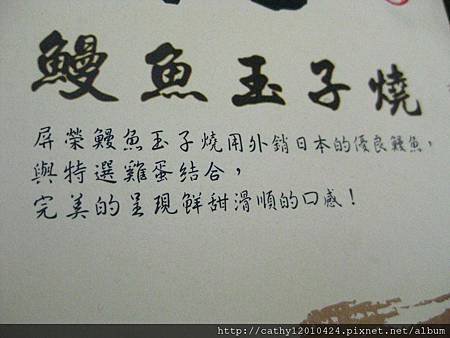 鰻魚玉子燒
屏榮鰻魚玉子燒用外銷日本的優良鰻魚，
與特選雞蛋結合，
完美的呈現鮮甜滑順的口感！
http://cathy12010424.pixnet.net/album